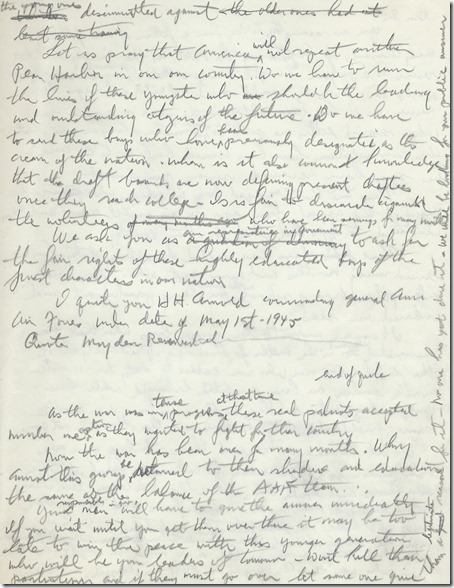 the young ones
discriminated against the older ones had at
least some training
Let us pray that America will not repeat another
Pearl Harbor in our own country. Do we have to ruin
the lives of these youngsters who should be the leading
and outstanding citizens of the future. Do we have
to send these boys who have been previously designated as the
cream of the nation. when is it also common knowledge
that the draft boards are now deferring present draftees
once they reach college. Is it fair to discriminate against
the volunteers who have been in for many months
We ask you as our representatives in government to ask for
the fair rights of these highly educated boys of the
finest characters in our nation
I quote you HH Arnold commanding general Army
Air Forces under date of May 1st - 1945
Quote Mayden Reserved
end of quote
As the war was in progress these real patriots accepted
at that time
they wanted to fight for their country
Now the war has been over for many months. Why
cannot this group be returned to their studies and education
the same as the balance of the AAF team.
You men will have to give the answer immediately
If you wait until you get them over there it may be too
late to win the peace with this younger generation
who will be your leaders of tomorrow. Don't kill their
patriotism and if they must go over let some one give
them a reason for it. No one has yet done it - we will be looking for your public answer